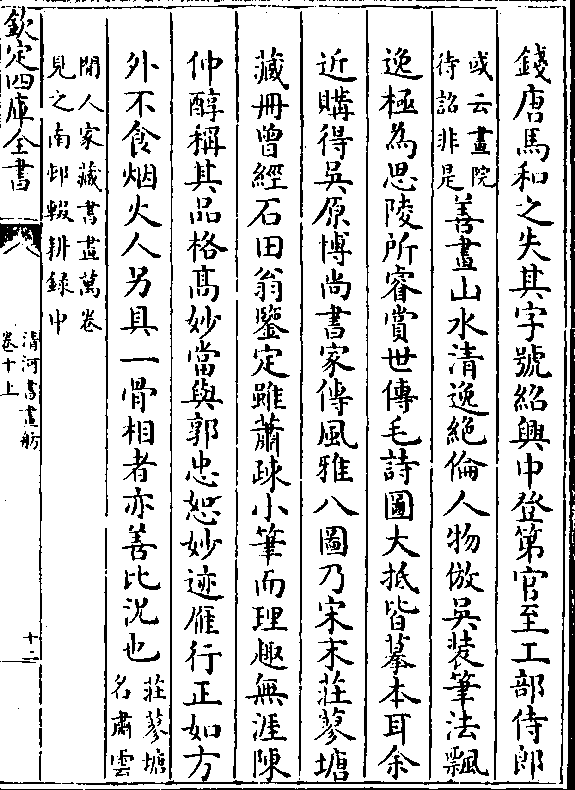 錢唐馬和之失其字號紹興中登第官至工部侍郎
或云畫院
待詔非是
善畫山水清逸絶倫人物倣吳裝筆法飄
逸極為思陵所睿賞世傳毛詩圖大抵皆摹本耳余
近購得吳原博尚書家傳風雅八圖乃宋末莊蓼塘
藏冊曾經石田翁鑒定雖蕭疎小筆而理趣無涯陳
仲醇稱其品格髙妙當與郭忠恕妙迹雁行正如方
外不食烟火人另具一骨相者亦善比況也
莊蓼塘
名肅雲
閒人家藏書畫萬卷
見之南邨輟耕録中
欽定四庫全書
清河書畫舫
卷十上
十二